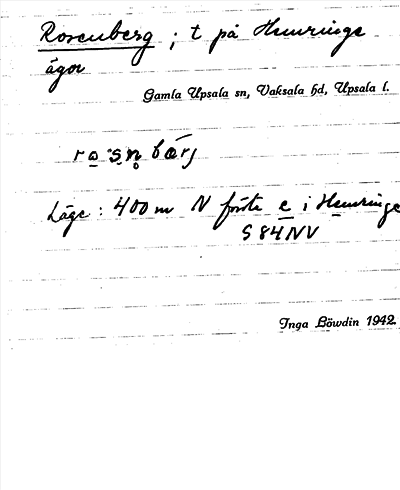 Rosenberg ; t på Hemringe
ägor
Gamla Upsala sn, Vaksala hd, Upsala l.
Läge : 400 m N förste e i Hemringe
S 84 NV
Inga Löwdin 1942.